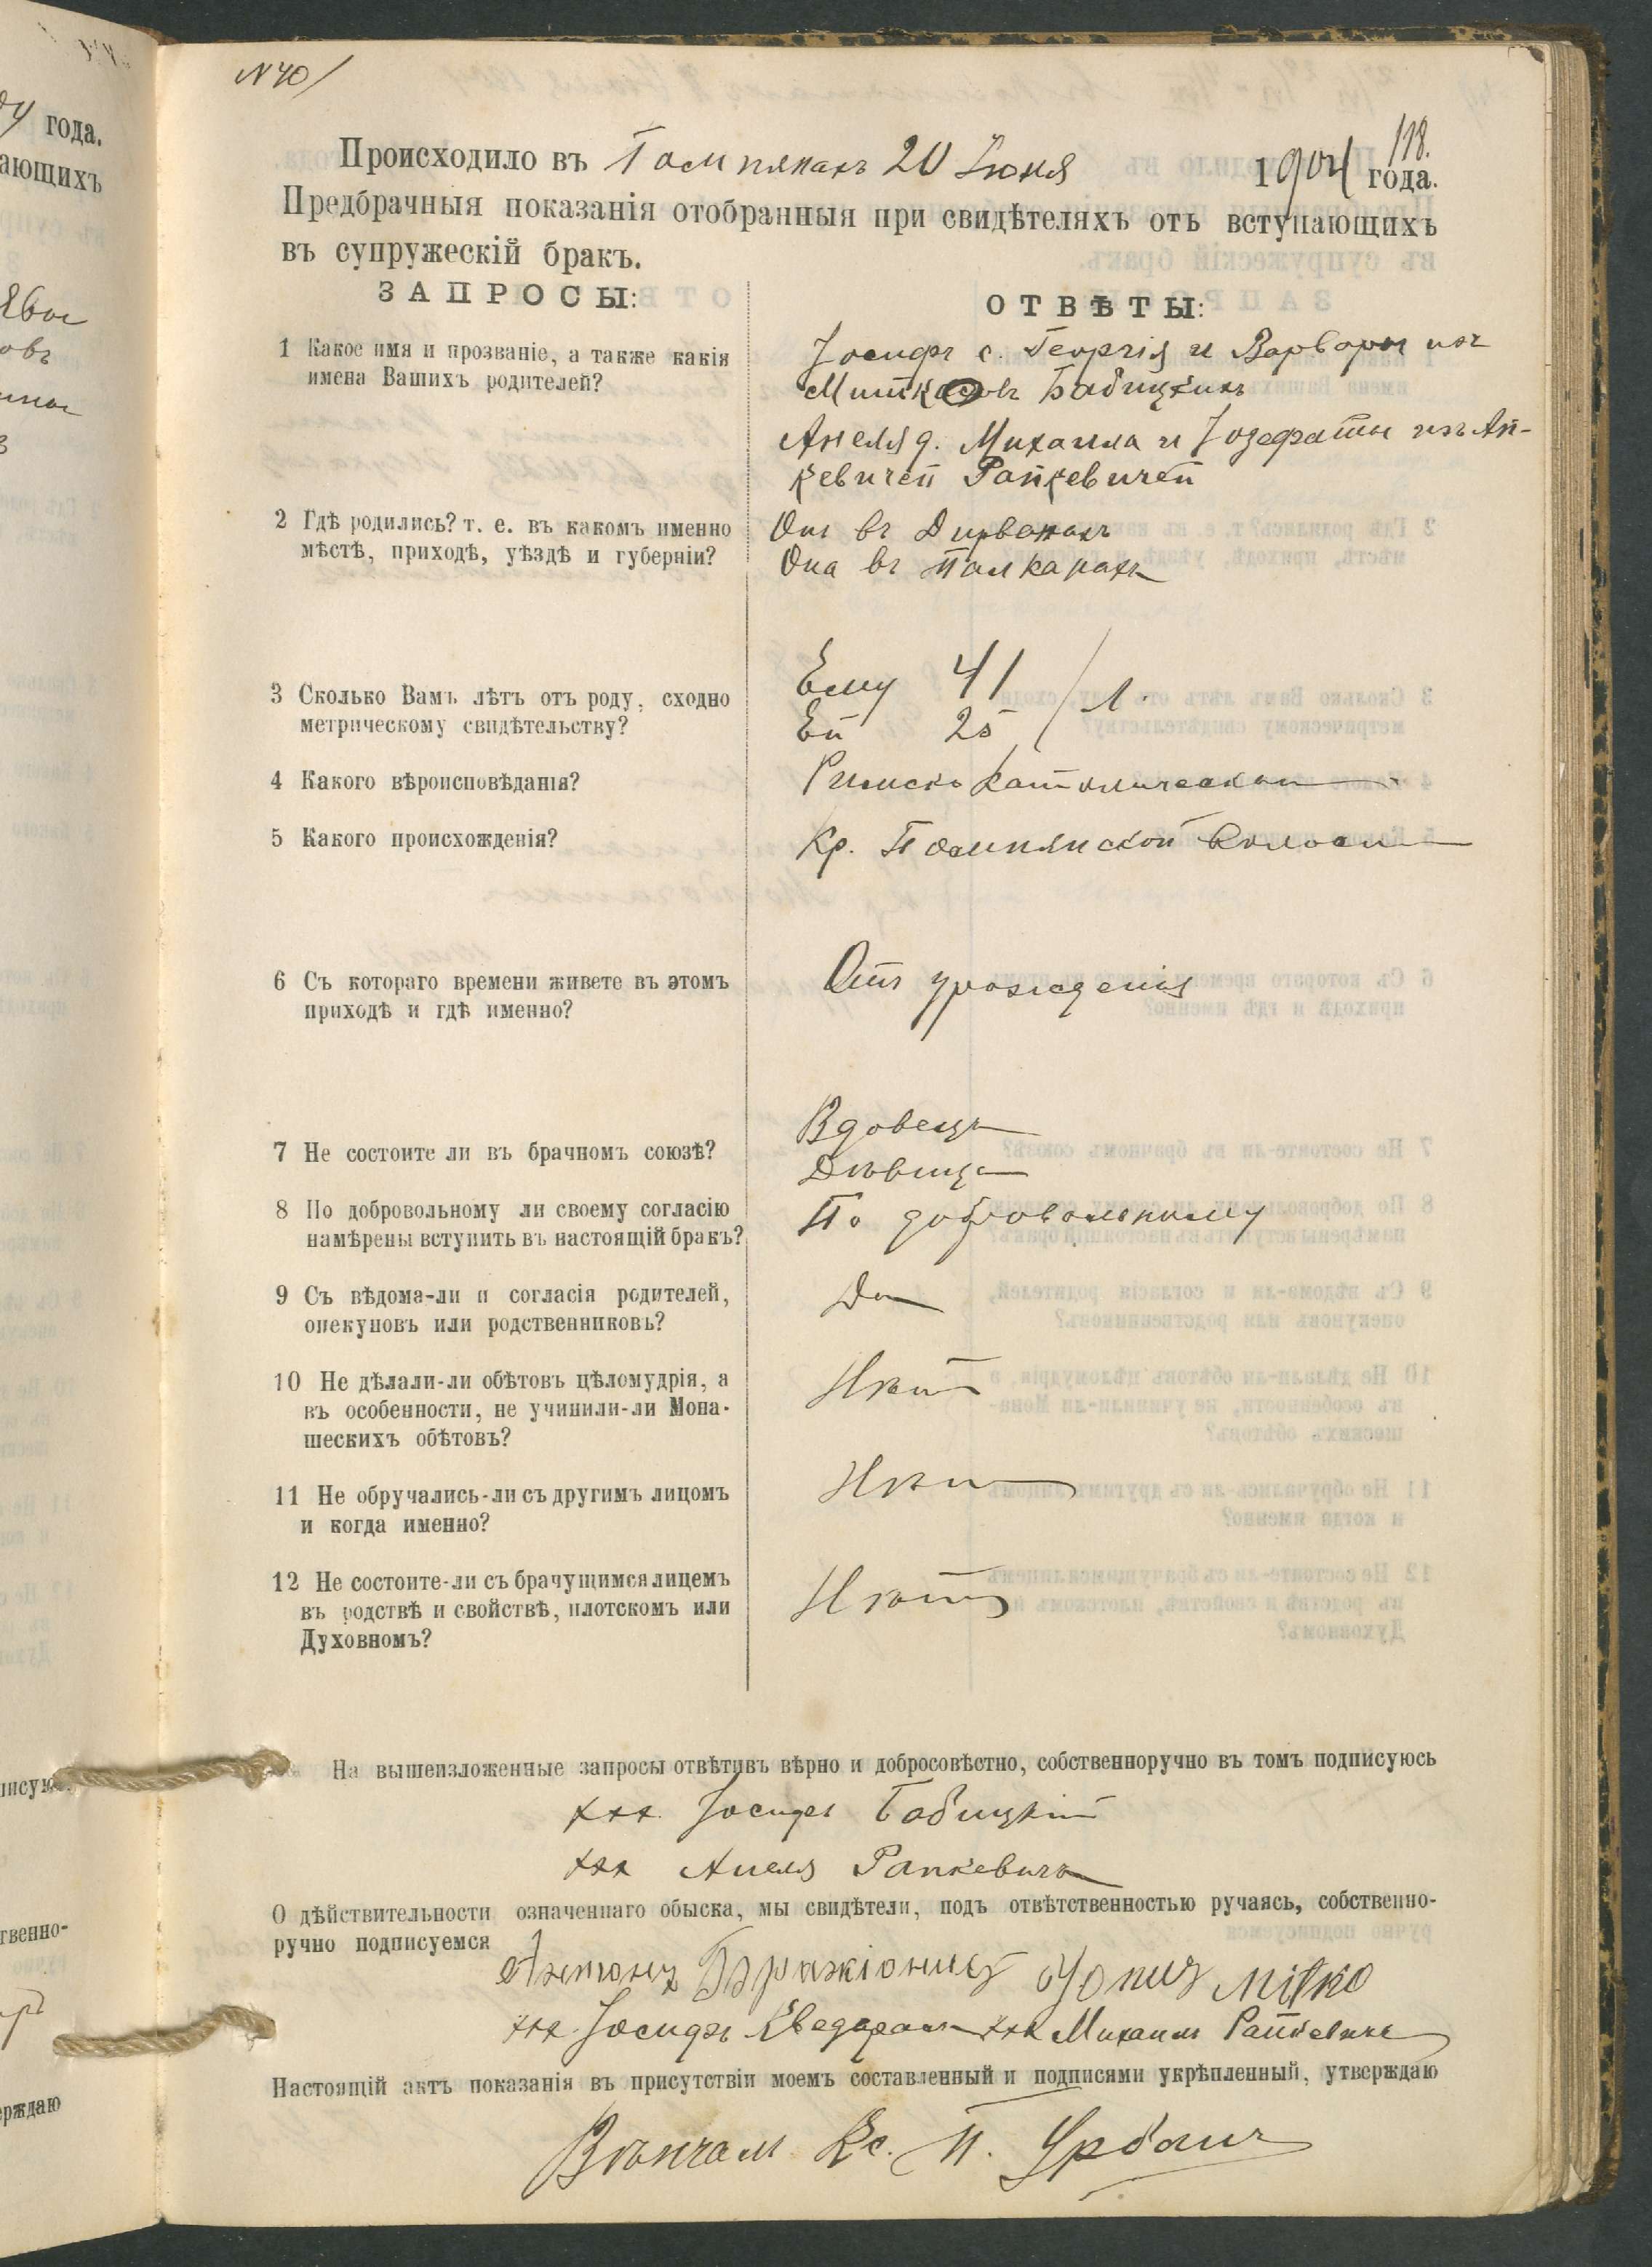 N 40/
118.
Происходило въ 20 Іюня 1904 года.
Предбрачныя показанія отобранныя при свидѣтеляхъ отъ вступающихъ
въ супружескій бракъ.
ЗАПРОСЫ:
ОТВѢТЫ:
1 Какое имя и прозваніе, а также какія
имена Вашихъ родителей?
Іосифъ с. Георгія и Варвары изъ
Бабицкихъ
Анеля д. Михаила и Іозефаты изъ Ян-
кевичей Рапкевичей
2 Гдѣ родились? т. е. въ какомъ именно
мѣстѣ, приходѣ, уѣздѣ и губерніи?
Онъ въ Дирванахъ
Она въ
3 Сколько Вамъ лѣтъ отъ роду, сходно
метрическому свидѣтельству?
Ему 41 / л.
Ей 25
4 Какого вѣроисповѣданія?
Римско Католическаго
5 Какого происхожденія?
Кр. волости
6 Съ котораго времени живете въ этомъ
приходѣ и гдѣ именно?
Отъ урожденія
7 Не состоите ли въ брачномъ союзѣ?
Вдовецъ
Дѣвица
8 По добровольному ли своему согласію
намѣрены вступить въ настоящій бракъ?
По добровольному
9 Съ вѣдома-ли и согласія родителей,
опекуновъ или родственниковъ?
Да
10 Не дѣлали-ли обѣтовъ цѣломудрія, а
въ особенности, не учинили-ли Мона-
шескихъ обѣтовъ?
Нѣтъ
11 Не обручались-ли съ другимъ лицомъ
и когда именно?
Нѣтъ
12 Не состоите-ли съ брачущимся лицемъ
въ родствѣ и свойствѣ, плотскомъ или
Духовномъ?
Нѣтъ
На вышеизложенные запросы отвѣтивъ вѣрно и добросовѣстно, собственноручно въ томъ подписуюсь
xxx Іосифъ Бабицкій
xxx Анеля Рапкевичъ
О дѣйствительности означеннаго обыска, мы свидѣтели, подъ отвѣтственностью ручаясь, собственно-
ручно подписуемся
Антонъ
xxx Іосифъ xxx Михаилъ Рапкевичъ
Настоящій актъ показанія въ присутствіи моемъ составленный и подписями укрѣпленный, утверждаю
Вѣнчалъ Кс. П. Урбанъ